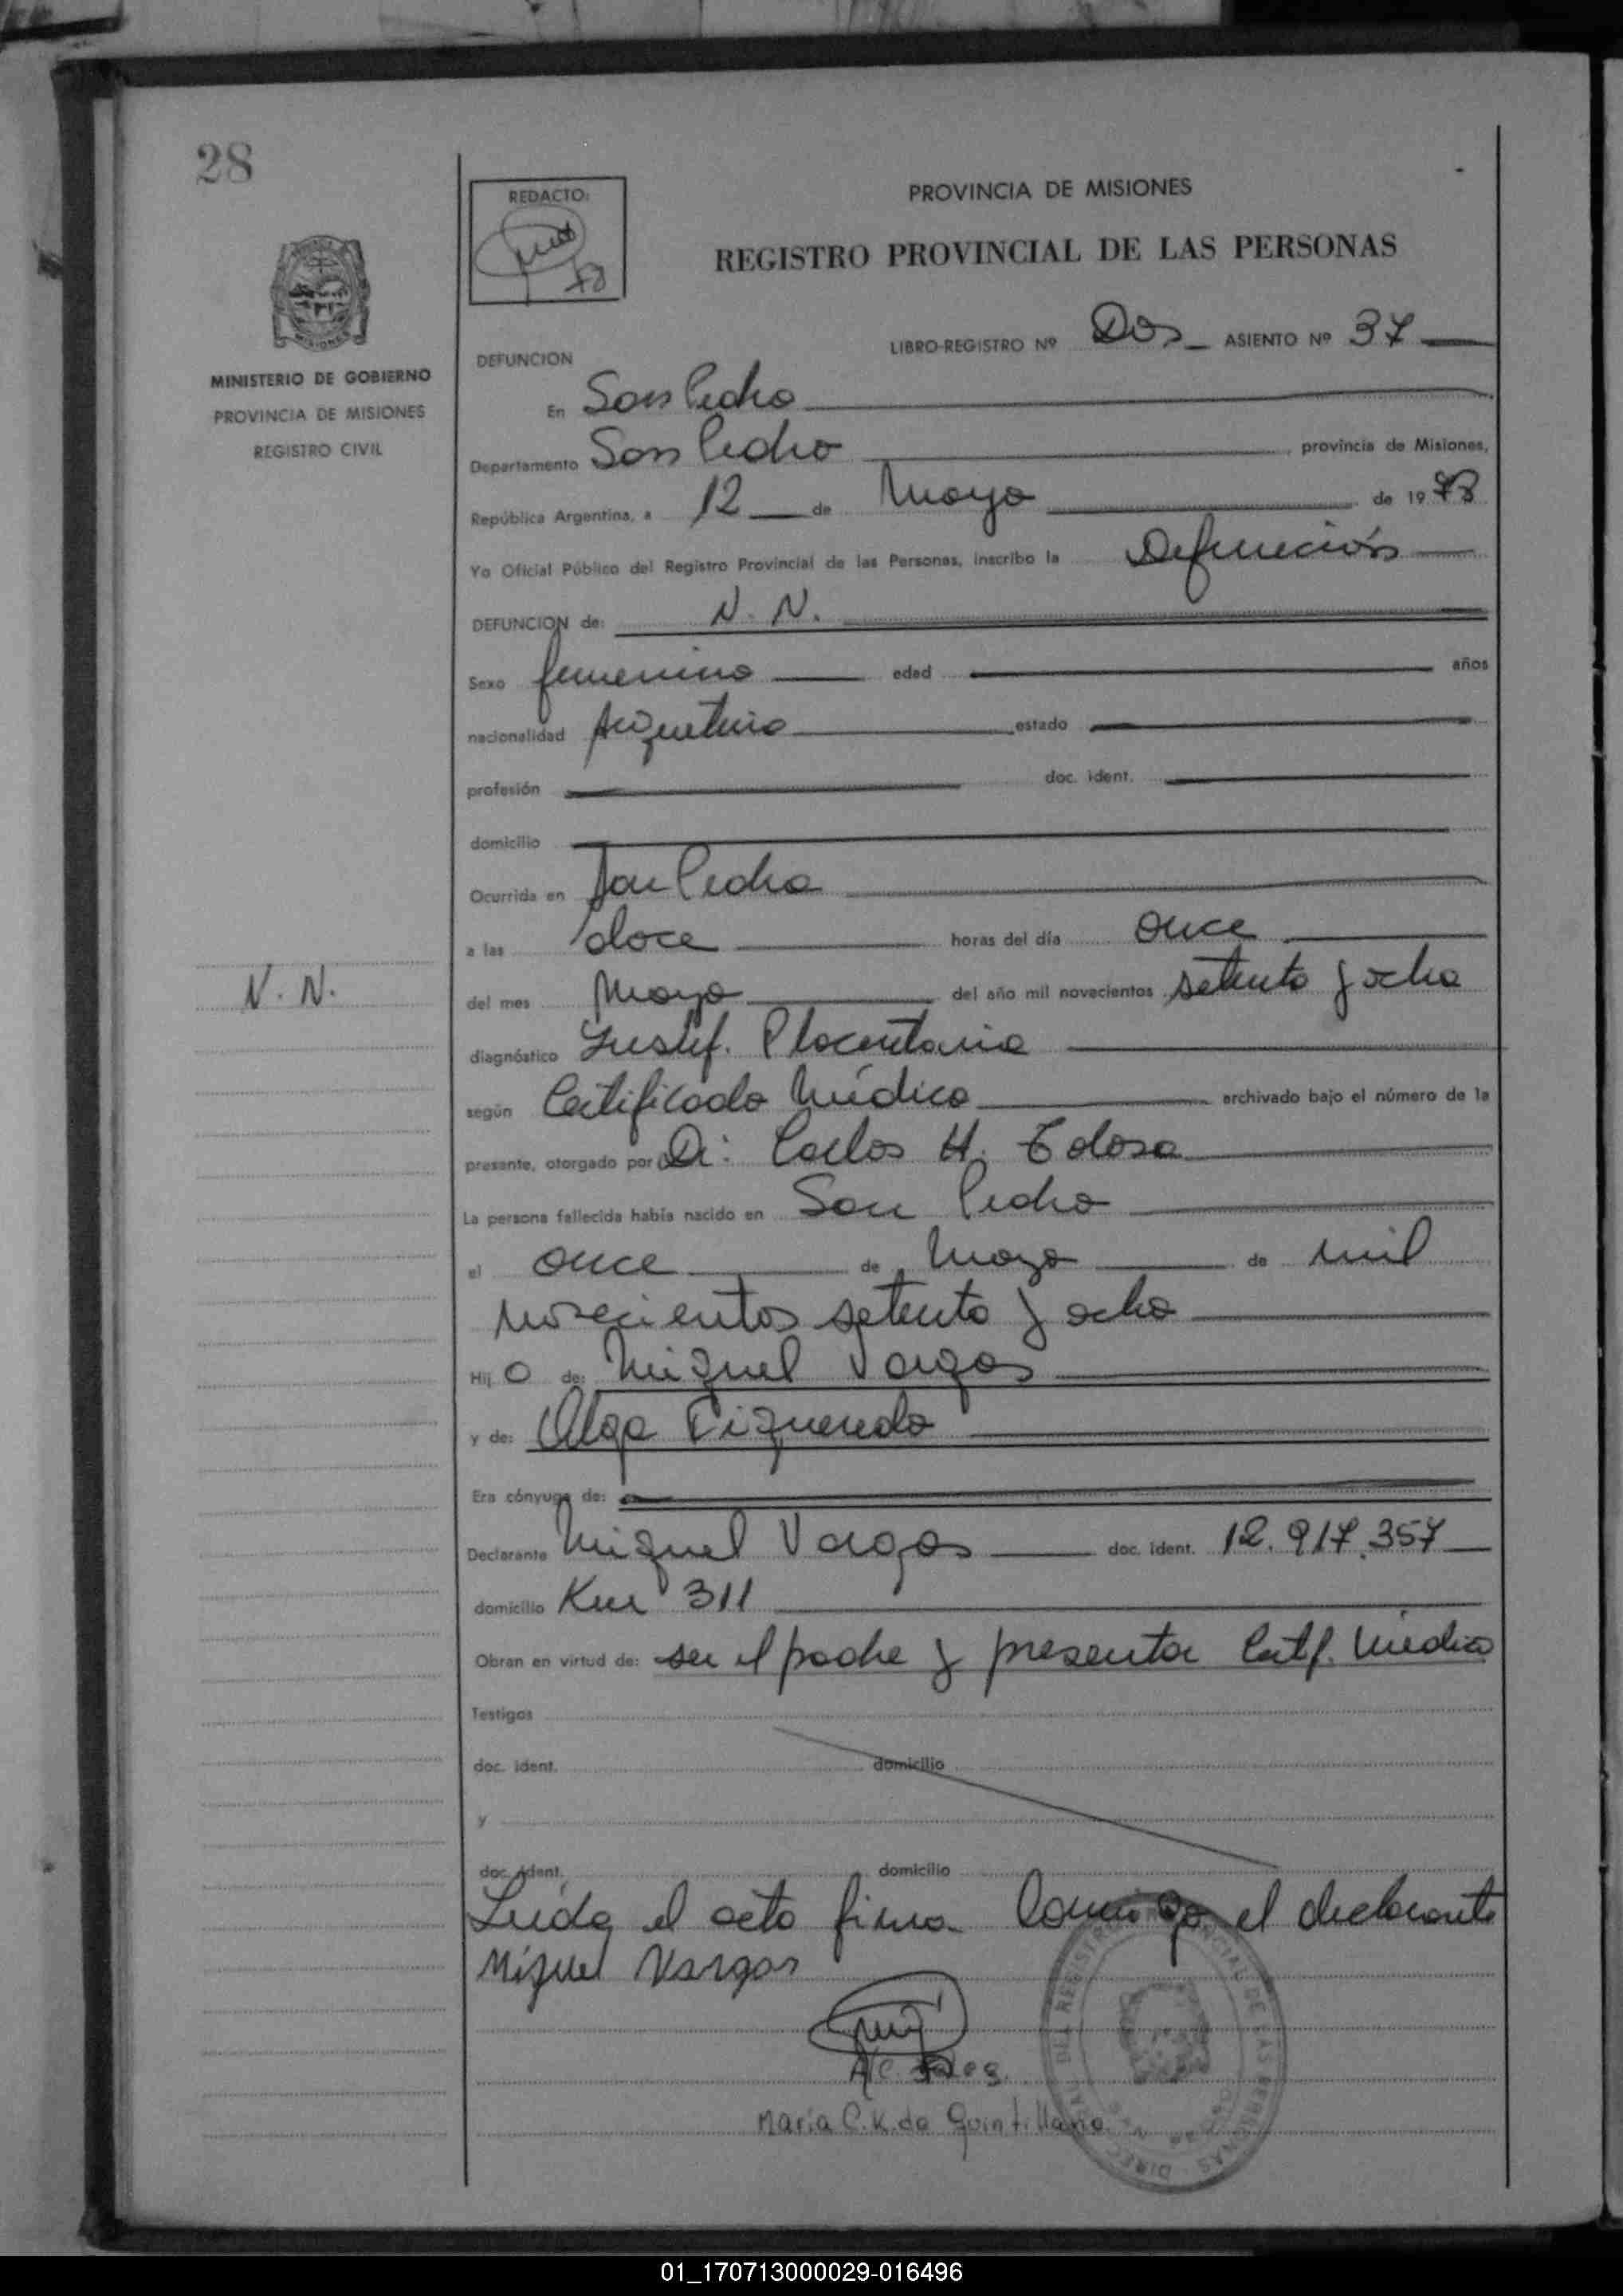 28
REDACTO:
PROVINCIA DE MISIONES
REGISTRO PROVINCIAL DE LAS PERSONAS
MINISTERIO DE GOBIERNO
PROVINCIA DE MISIONES
REGISTRO CIVIL
LIBRO-REGISTRO Nº Dos ASIENTO Nº 37
DEFUNCION
En San Pedro
Departamento San Pedro, provincia de Misiones,
República Argentina, a 12 de Mayo de 1978
Yo Oficial Público del Registro Provincial de las Personas, inscribo la Defunción
DEFUNCION de: N. N.
Sexo femenino edad años
nacionalidad Argentina estado
profesión doc. ident.
domicilio
Ocurrida en San Pedro
a las doce horas del día once
N. N.
del mes Mayo del año mil novecientos setenta y ocho
diagnóstico Insuf. Placentaria
según Certificado Médico archivado bajo el número de la
presente, otorgado por Dr: Carlos H. Tolosa
La persona fallecida había nacido en San Pedro
el once de Mayo de mil
novecientos setenta y ocho
Hij o de: Miguel Vargas
y de: Olga Figueredo
Era cónyuge de:
Declarante Miguel Vargas doc. ident. 12.917.357
domicilio Km 311
Obran en virtud de: ser el padre y presentar Certf. Médico
Testigos
doc. ident. domicilio
y
doc. ident. domicilio
Leída el acta firma conmigo el declarante
Miguel Vargas
María C.K. de Quintillano
01_170713000029-016496